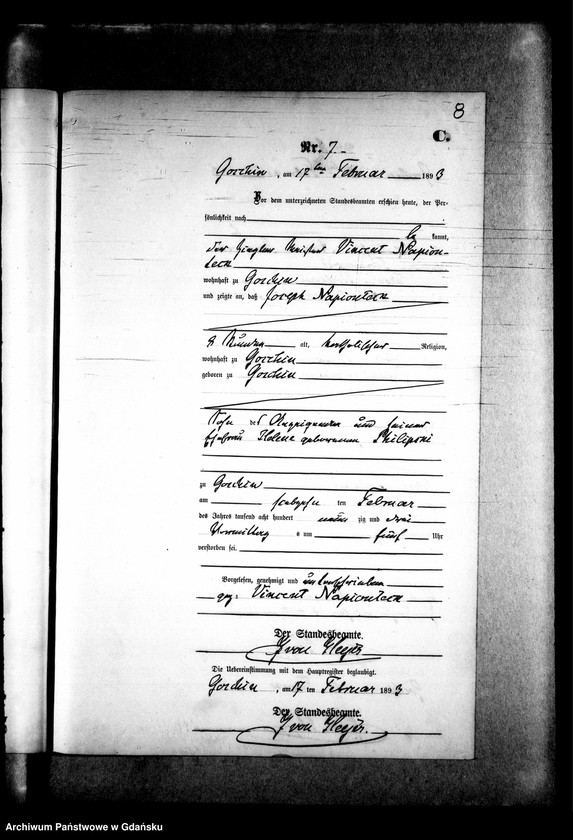 8
C.
Nr. 7.
Gorchin, am 17ten Februar 1893
Vor dem unterzeichneten Standesbeamten erschien heute, der Per-
sönlichkeit nach
be kannt,
der Ziegler Vincent Napion-
teck
wohnhaft zu Gorchin
und zeigte an, daß Joseph Napionteck
8 Stunden alt, katholischer Religion,
wohnhaft zu Gorchin
geboren zu Gorchin
Sohn des Anzeigenden und seiner
Ehefrau Helene geborenen Philipski
zu Gorchin
am siebzehn ten Februar
des Jahres tausend acht hundert neun zig und drei
Vormittags um fünf Uhr
verstorben sei.
Vorgelesen, genehmigt und unterschrieben
gez: Vincent Napionteck
Der Standesbeamte.
Die Uebereinstimmung mit dem Hauptregister beglaubigt.
Gorchin, am 17 ten Februar 1893
Der Standesbeamte.
Archiwum Państwowe w Gdańsku